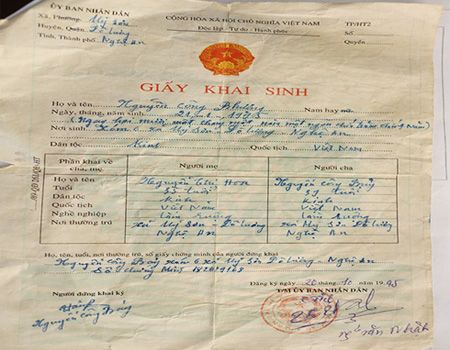 ỦY BAN NHÂN DÂN
Xã, Phường: Mỹ Sơn
Huyện, Quận: Đô Lương
Tỉnh, Thành phố: Nghệ An
CỘNG HÒA XÃ HỘI CHỦ NGHĨA VIỆT NAM
Độc lập - Tự do - Hạnh phúc
TP/HT2
Số
Quyển
GIẤY KHAI SINH
Họ và tên Nguyễn Công Phượng Nam hay nữ
Ngày, tháng, năm sinh: 21
Nơi sinh Xóm 6 xã Mỹ Sơn - Đô Lương Nghệ An
Dân tộc: Kinh Quốc tịch Việt Nam
Phần khai về cha, mẹ Người mẹ Người cha
Họ và tên Nguyễn Thị Hoa Nguyễn Công Bảy
Tuổi tuổi tuổi
Dân tộc Kinh Kinh
Quốc tịch Việt Nam Việt Nam
Nghề nghiệp Làm ruộng Làm ruộng
Nơi thường trú xã Mỹ Sơn - Đô Lương xã Mỹ Sơn Đô Lương
Nghệ An Nghệ An
Họ, tên, tuổi, nơi thường trú, số giấy chứng minh của người đứng khai
Nguyễn Công Bảy xóm 6 xã Mỹ Sơn Đô Lương - Nghệ An
Số chứng minh
Người đứng khai ký
Nguyễn Công Bảy
Đăng ký ngày 20 tháng 10 năm 1995
T/M ỦY BAN NHÂN DÂN